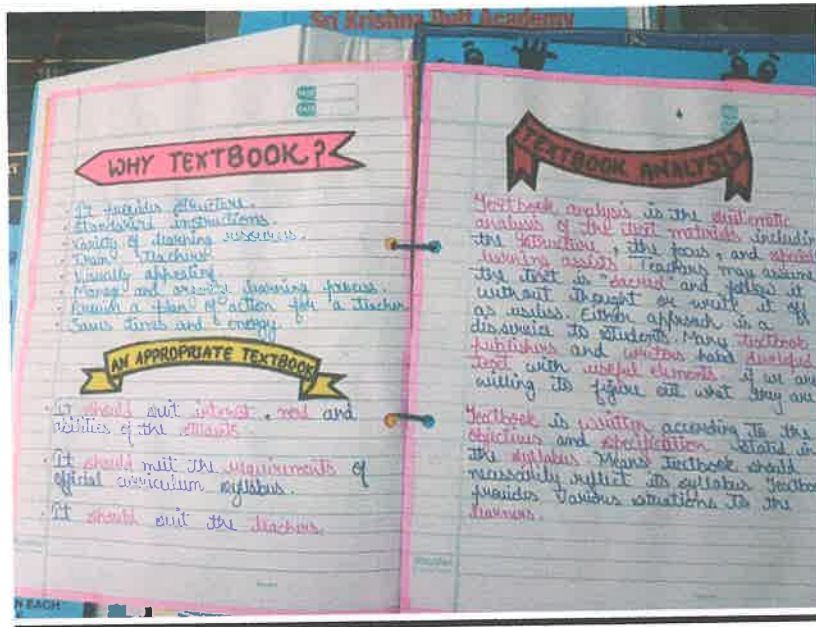 Sri Krishna Dutt Academy
PAGE
DATE
WHY TEXTBOOK?
• It provides structure.
• Standard instructions.
• Variety of learning resources.
• Train teachers
• Visually appealing
• Manage and organise learning process.
• Provide a plan of action for a teacher
• Saves times and energy.
AN APPROPRIATE TEXTBOOK
• It should suit interest, need and
abilities of the students
• It should meet the requirements of
official curriculum syllabus.
• It should suit the teachers.
TEXTBOOK ANALYSIS
Textbook analysis is the systematic
analysis of the text materials includin
the structure, the focus, and special
learning assists. Teachers may assume
the text is "sacred" and follow it
without thought or write it off
as useless. Either approach is a
disservice to students. Many textbook
publishers and writers have
text with useful elements if we are
willing to figure out what they are
Textbook is written according to the
objectives and specification stated in
the syllabus. Means textbook should
necessarily reflect its syllabus Textboo
provides various situations to the
learners.
N EACH